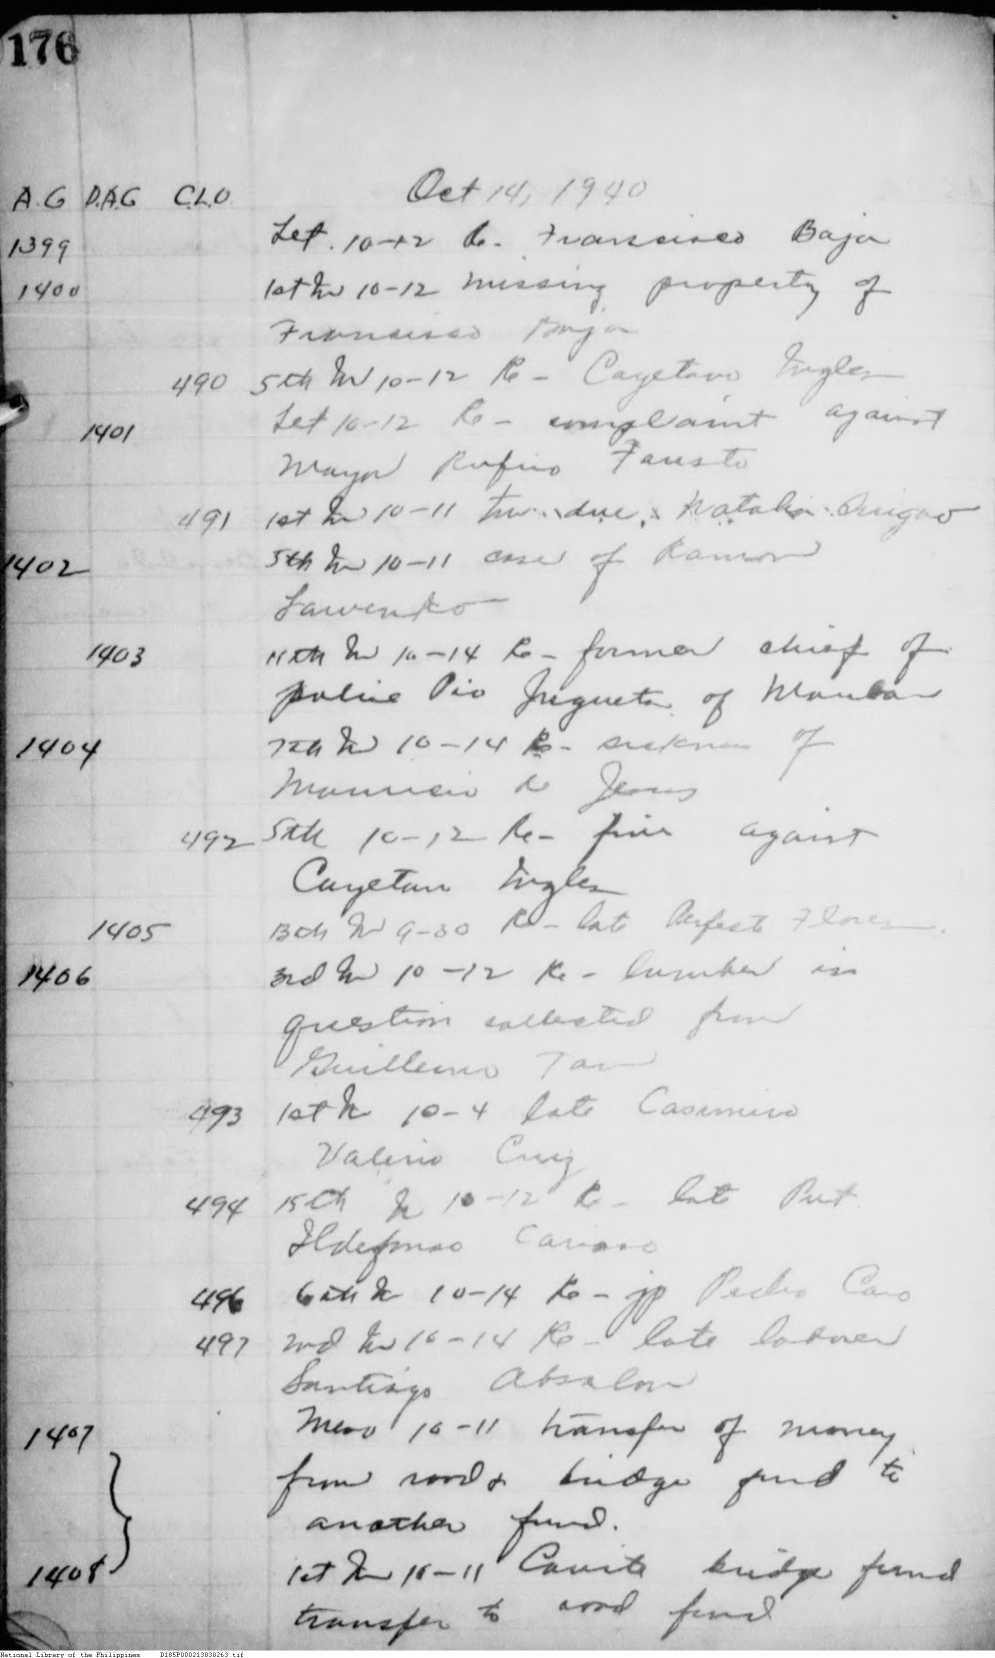 176
A.G D.A.G C.L.O. Oct 14, 1940
1399 Let. 10-12 Re. Francisco Baja
1400 1st In 10-12 missing property of
Francisco Baja
490 5th In 10-12 Re - Cayetano Ingles
1401 Let 10-12 Re - complaint against
Mayor Rufino Fausto
491 1st In 10-11 due, Natalia
1402 5th In 10-11 case of Ramon
1403 11th In 10-14 Re - former chief of
police Pio of Mauban
1404 7th In 10-14 Re - sickness of
Mauricio de Jesus
492 5th 10-12 Re - fine against
Cayetano Ingles
1405 13th In 9-30 Re - late Perfecto Flores.
1406 3rd In 10-12 Re - lumber in
question collected from
Guillermo Tan
493 1st In 10-4 late Casimiro
Valerio Cruz
494 15th In 10-12 Re - late Pvt.
Ildefonso Cariaso
496 6th In 10-14 Re - jp Pedro Caro
497 2nd In 10-14 Re - late laborer
Santiago Absalon
1407 Memo 10-11 transfer of money
from road & bridge fund to
another fund.
1408 1st In 10-11 Cavite bridge fund
transfer to road fund
National Library of the Philippines D185P000213838263.tif